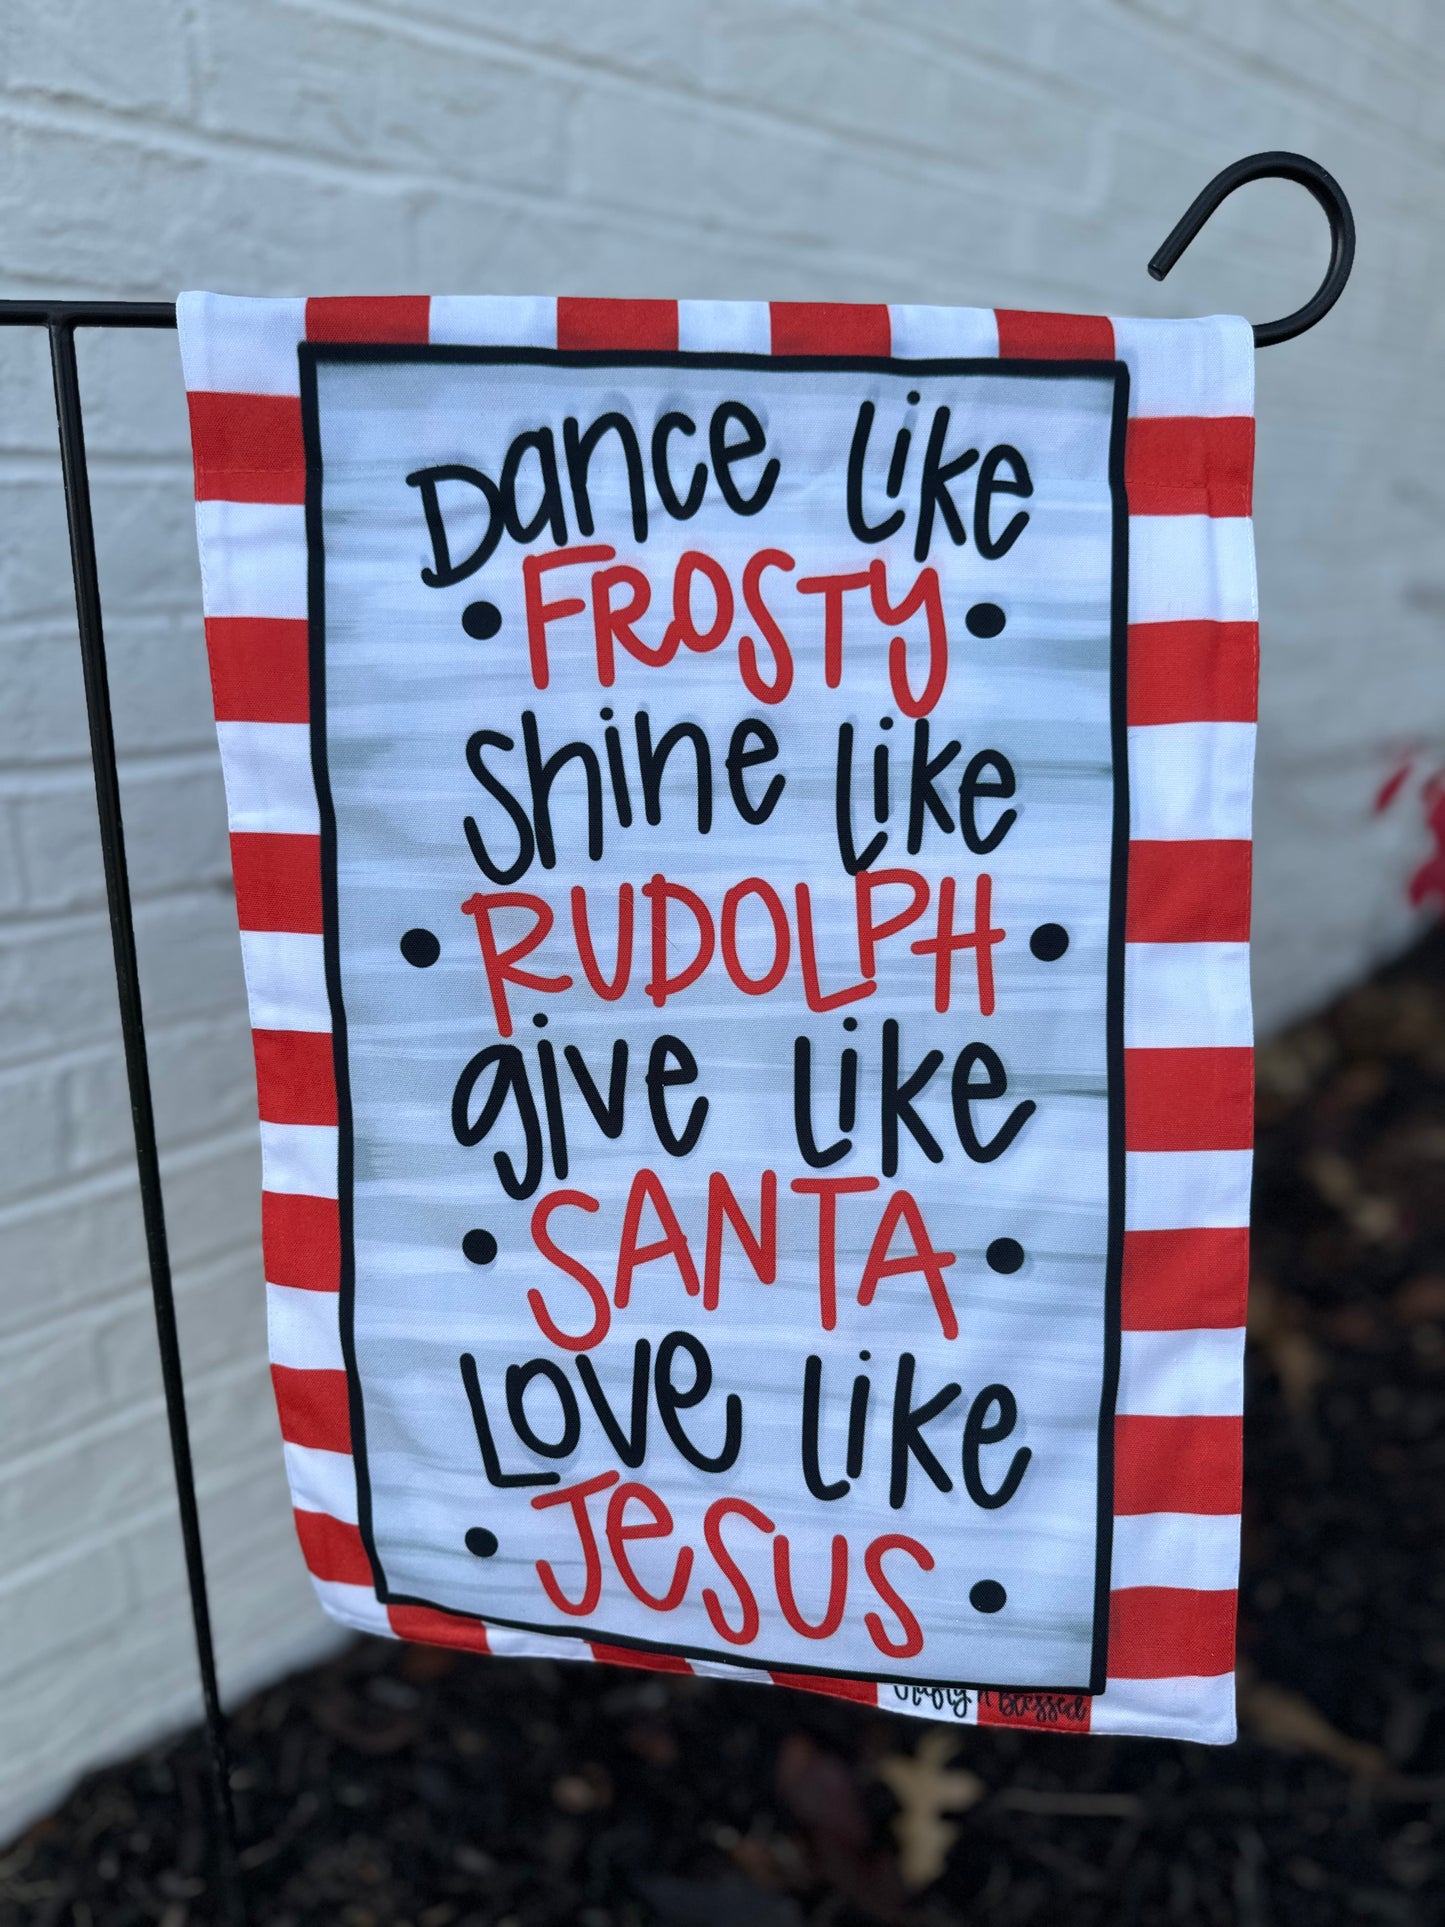 Dance like
FROSTY
shine like
RUDOLPH
give like
SANTA
Love like
Jesus
Blessed